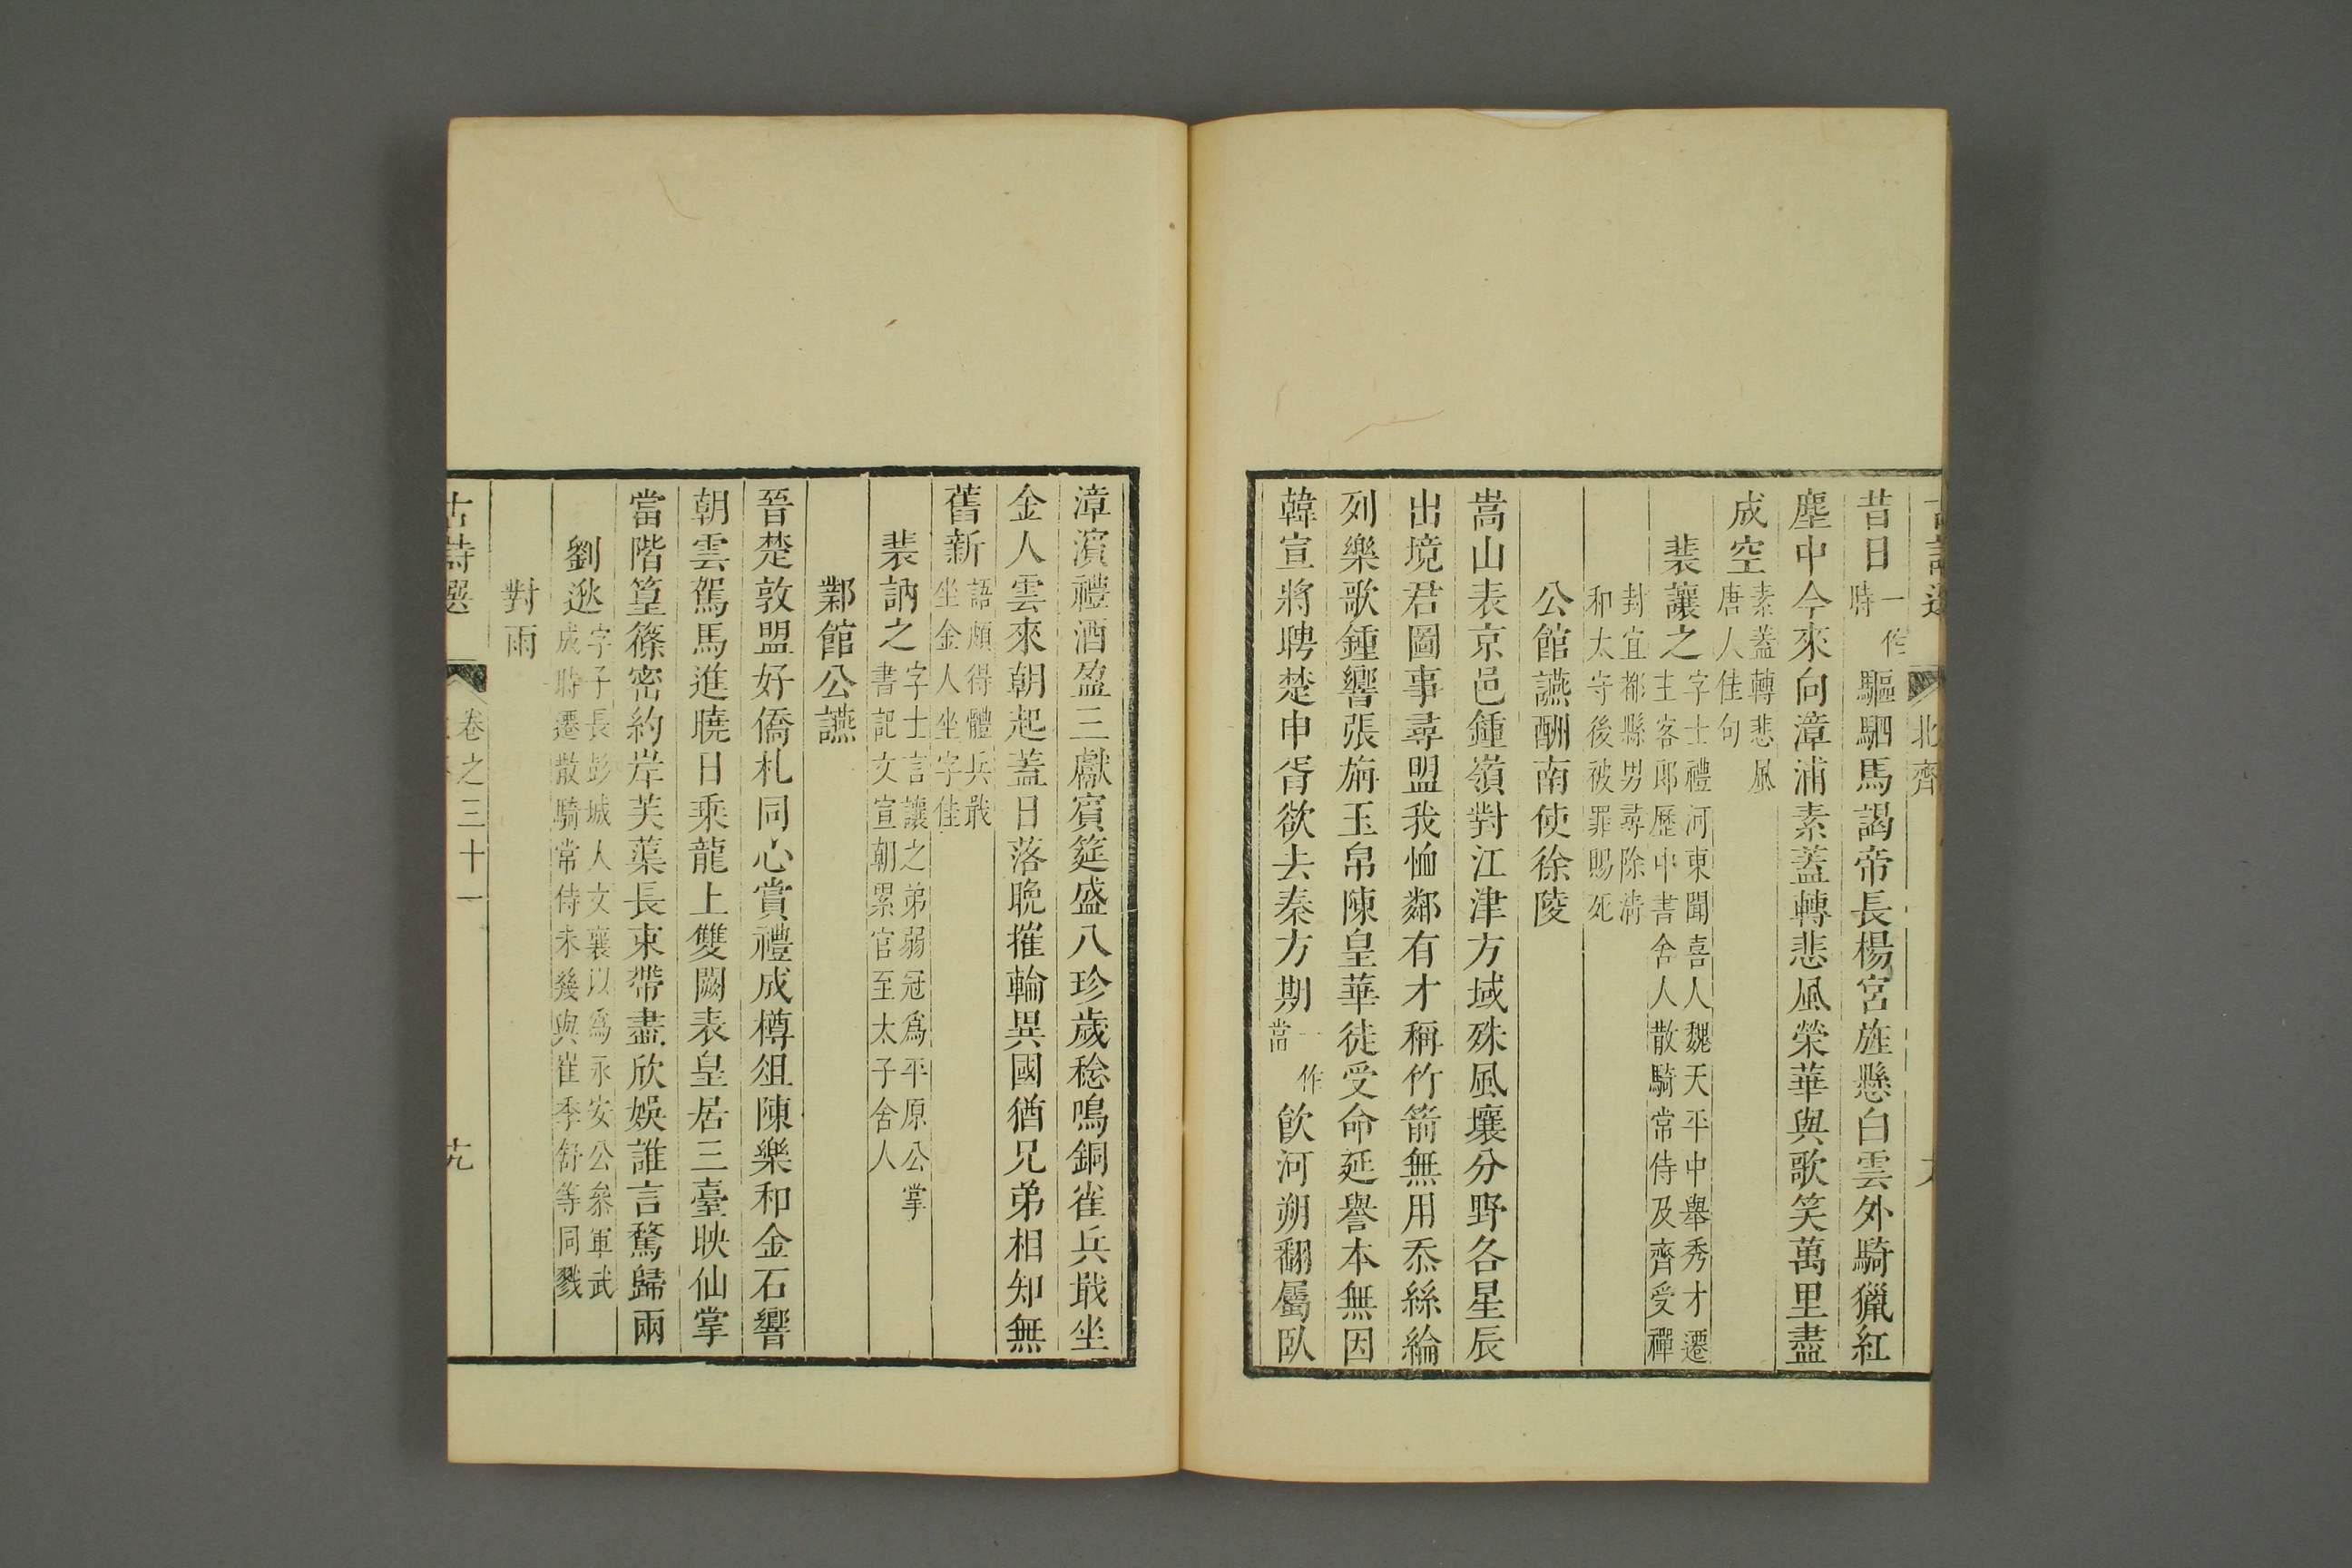 北齊
昔日一作時驅駟馬謁帝長楊宮旌懸白雲外騎獵紅
塵中今來向漳浦素蓋轉悲風榮華與歌笑萬里盡
成空素蓋轉悲風唐人佳句
裴讓之字士禮河東聞喜人魏天平中舉秀才遷主客郎歷中書舍人散騎常侍及齊受禪
封宜都縣男尋除清和太守後被罪賜死
公館讌酬南使徐陵
嵩山表京邑鍾嶺對江津方域殊風壤分野各星辰
出境君圖事尋盟我恤鄰有才稱竹箭無用忝絲綸
列樂歌鍾響張旃玉帛陳皇華徒受命延譽本無因
韓宣將聘楚申胥欲去秦方期一作當飲河朔翻屬臥
漳濱禮酒盈三獻賓筵盛八珍歲稔鳴銅雀兵戢坐
金人雲來朝起蓋日落晚摧輪異國猶兄弟相知無
舊新語頗得體兵戢坐金人坐字佳
裴訥之字士言讓之弟弱冠爲平原公掌書記文宣朝累官至太子舍人
鄴館公讌
晉楚敦盟好僑札同心賞禮成樽俎陳樂和金石響
朝雲駕馬進曉日乘龍上雙闕表皇居三臺映仙掌
當階篁篠密約岸芙蕖長束帶盡欣娛誰言騖歸兩
劉逖字子長彭城人文襄以爲永安公叅軍武成時遷散騎常侍未幾與崔季舒等同戮
對雨
古詩選 卷之三十一 十九